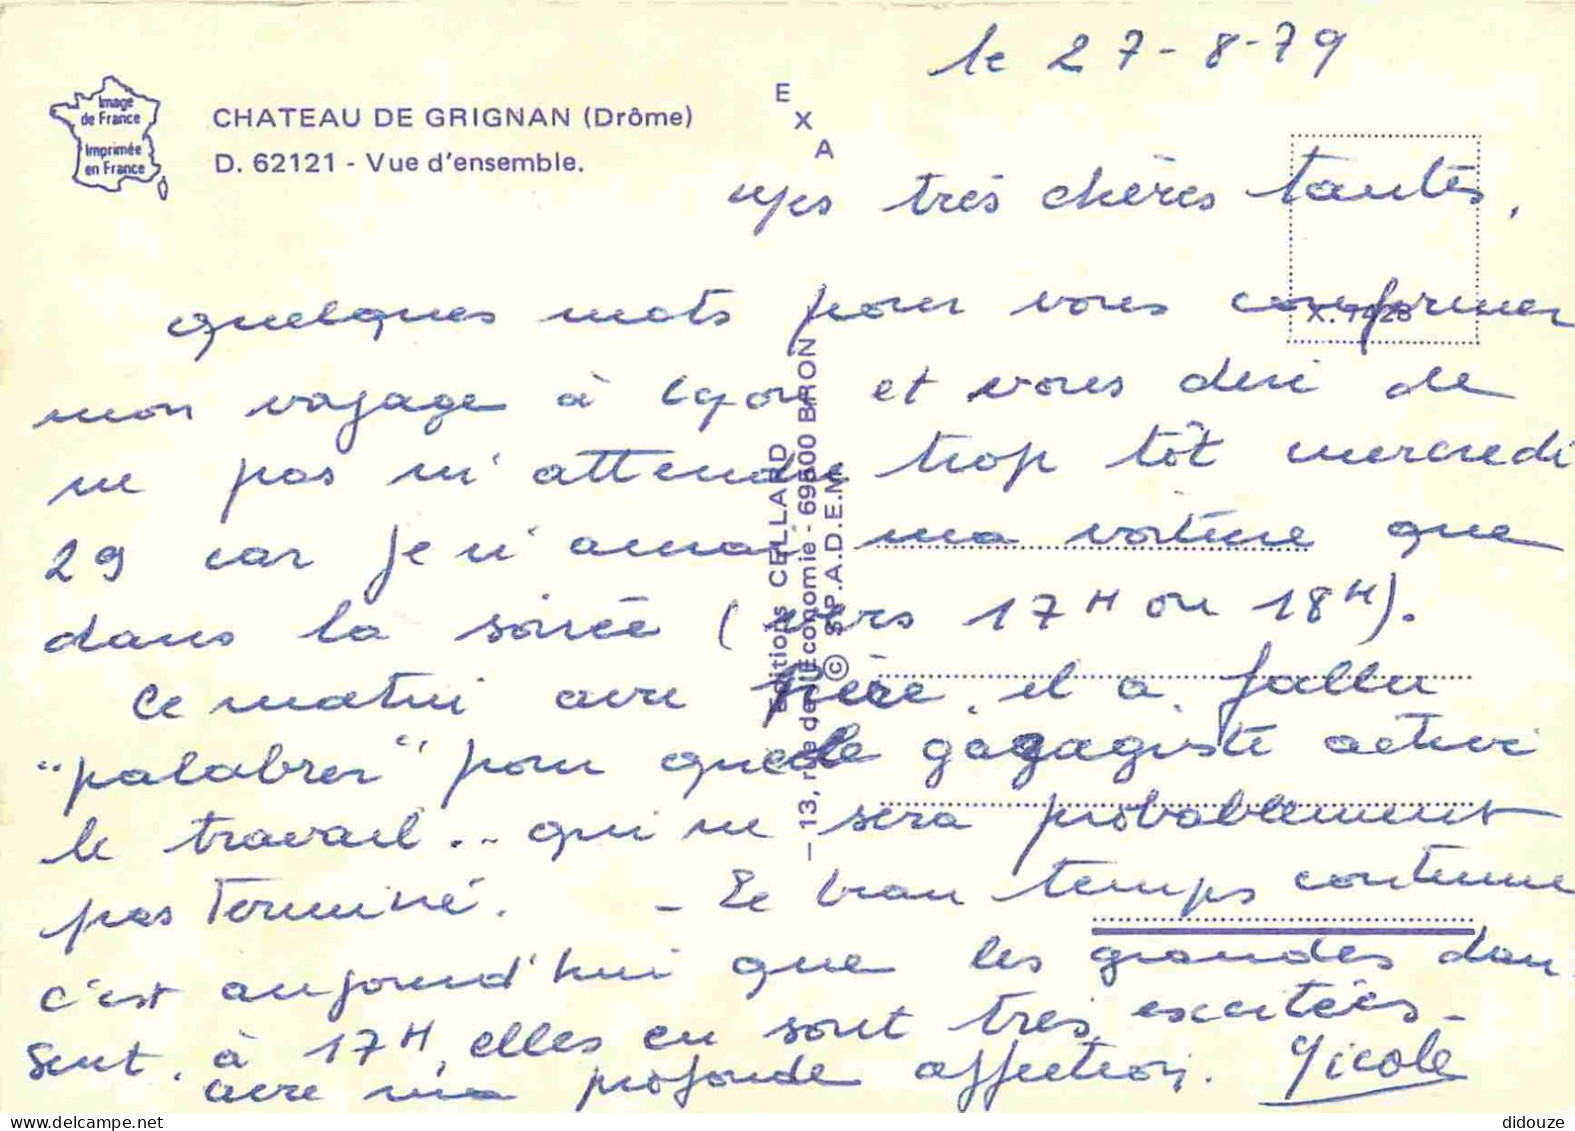 le 27-8-79
Image
de France
Imprimée
en France
CHATEAU DE GRIGNAN (Drôme)
D. 62121 - Vue d'ensemble.
EXA
Mes très chères tantes,
quelques mots pour vous confirmer
mon voyage à Lyon et vous dire de
ne pas m'attendre trop tôt mercredi
29 car je n'aurai ma voiture que
dans la soirée (vers 17H ou 18H).
Ce matin avec Pierre, il a fallu
"palabrer" pour que le garagiste active
le travail... qui ne sera probablement
pas terminé. - Le beau temps continue
c'est aujourd'hui que les grandes dan-
sent. à 17H, elles en sont très excitées -
avec ma profonde affection. Nicole
Editions CELLARD
- 13, rue de l'Economie - 69500 BRON
© S.P.A.D.E.M.
didouze